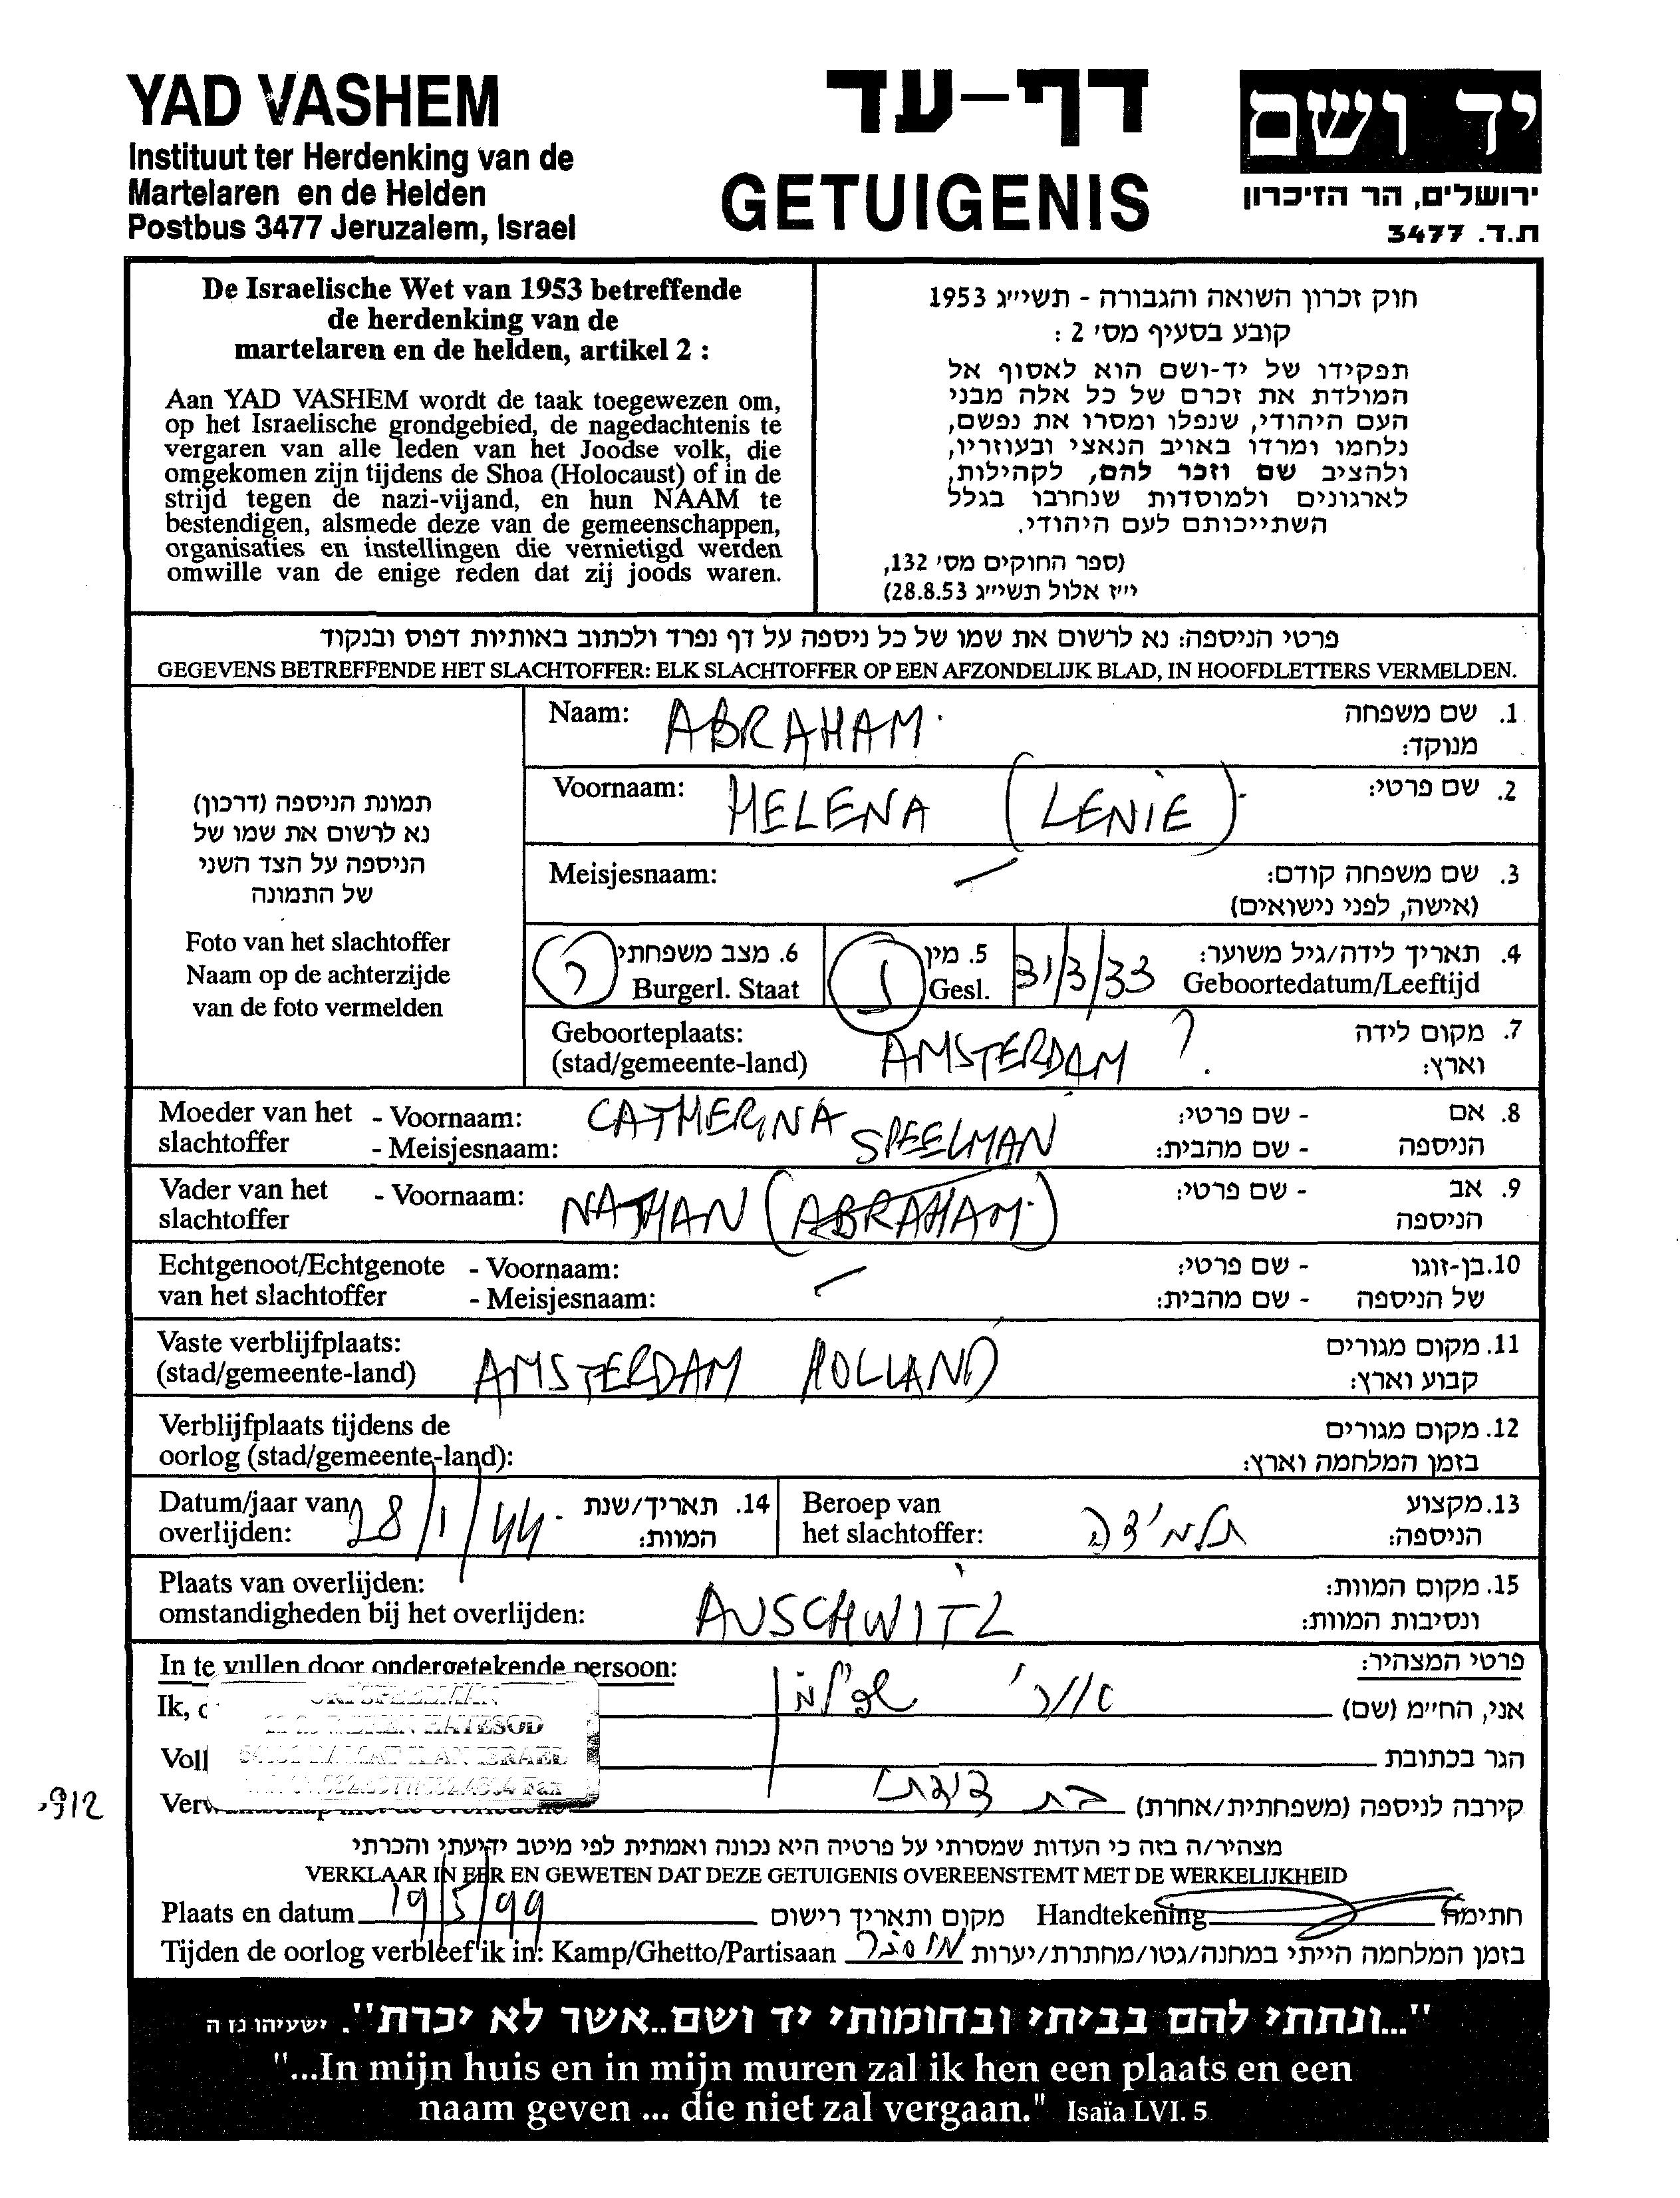 YAD VASHEM
Instituut ter Herdenking van de
Martelaren en de Helden
Postbus 3477 Jeruzalem, Israel
דף-עד
GETUIGENIS
יד ושם
ירושלים, הר הזיכרון
ת.ד. 3477
De Israelische Wet van 1953 betreffende
de herdenking van de
martelaren en de helden, artikel 2 :
Aan YAD VASHEM wordt de taak toegewezen om,
op het Israelische grondgebied, de nagedachtenis te
vergaren van alle leden van het Joodse volk, die
omgekomen zijn tijdens de Shoa (Holocaust) of in de
strijd tegen de nazi-vijand, en hun NAAM te
bestendigen, alsmede deze van de gemeenschappen,
organisaties en instellingen die vernietigd werden
omwille van de enige reden dat zij joods waren.
חוק זכרון השואה והגבורה - תשי״ג 1953
קובע בסעיף מס׳ 2 :
תפקידו של יד-ושם הוא לאסוף אל
המולדת את זכרם של כל אלה מבני
העם היהודי, שנפלו ומסרו את נפשם,
נלחמו ומרדו באויב הנאצי ובעוזריו,
ולהציב שם וזכר להם, לקהילות,
לארגונים ולמוסדות שנחרבו בגלל
השתייכותם לעם היהודי.
(ספר החוקים מס׳ 132,
י״ז אלול תשי״ג 28.8.53)
פרטי הניספה: נא לרשום את שמו של כל ניספה על דף נפרד ולכתוב באותיות דפוס ובנקוד
GEGEVENS BETREFFENDE HET SLACHTOFFER: ELK SLACHTOFFER OP EEN AFZONDELIJK BLAD, IN HOOFDLETTERS VERMELDEN.
תמונת הניספה (דרכון)
נא לרשום את שמו של
הניספה על הצד השני
של התמונה
Foto van het slachtoffer
Naam op de achterzijde
van de foto vermelden
Naam: ABRAHAM 1. שם משפחה
מנוקד:
Voornaam: HELENA (LENIE) 2. שם פרטי:
Meisjesnaam: — 3. שם משפחה קודם:
(אישה, לפני נישואים)
6. מצב משפחתי 5. מין 31/3/33 4. תאריך לידה/גיל משוער:
Burgerl. Staat Gesl. Geboortedatum/Leeftijd
Geboorteplaats: AMSTERDAM ? 7. מקום לידה
(stad/gemeente-land) וארץ:
Moeder van het - Voornaam: CATHERINA - שם פרטי: 8. אם
slachtoffer - Meisjesnaam: SPEELMAN - שם מהבית: הניספה
Vader van het - Voornaam: NATHAN (ABRAHAM) - שם פרטי: 9. אב
slachtoffer הניספה
Echtgenoot/Echtgenote - Voornaam: — - שם פרטי: 10. בן-זוגו
van het slachtoffer - Meisjesnaam: - שם מהבית: של הניספה
Vaste verblijfplaats: 11. מקום מגורים
(stad/gemeente-land) AMSTERDAM HOLLAND קבוע וארץ:
Verblijfplaats tijdens de 12. מקום מגורים
oorlog (stad/gemeente-land): בזמן המלחמה וארץ:
Datum/jaar van 28/1/44 14. תאריך/שנת Beroep van תלמידה 13. מקצוע
overlijden: המוות: het slachtoffer: הניספה:
Plaats van overlijden: 15. מקום המוות:
omstandigheden bij het overlijden: AUSCHWITZ ונסיבות המוות:
In te vullen door ondergetekende persoon: פרטי המצהיר:
Ik, שפילמן אורי אני, החי״מ (שם)
SPEELMAN
KEREN HAYESOD
RAMAT ILAN ISRAEL
Fax
הגר בכתובת
בת דודתי קירבה לניספה (משפחתית/אחרת)
מצהיר/ה בזה כי העדות שמסרתי על פרטיה היא נכונה ואמתית לפי מיטב ידיעתי והכרתי
VERKLAAR IN EER EN GEWETEN DAT DEZE GETUIGENIS OVEREENSTEMT MET DE WERKELIJKHEID
Plaats en datum 19/5/99 מקום ותאריך רישום Handtekening חתימה
Tijden de oorlog verbleef ik in: Kamp/Ghetto/Partisaan מוסתר בזמן המלחמה הייתי במחנה/גטו/מחתרת/יערות
"...ונתתי להם בביתי ובחומותי יד ושם..אשר לא יכרת". ישעיהו נו ה
"...In mijn huis en in mijn muren zal ik hen een plaats en een
naam geven ... die niet zal vergaan." Isaïa LVI. 5